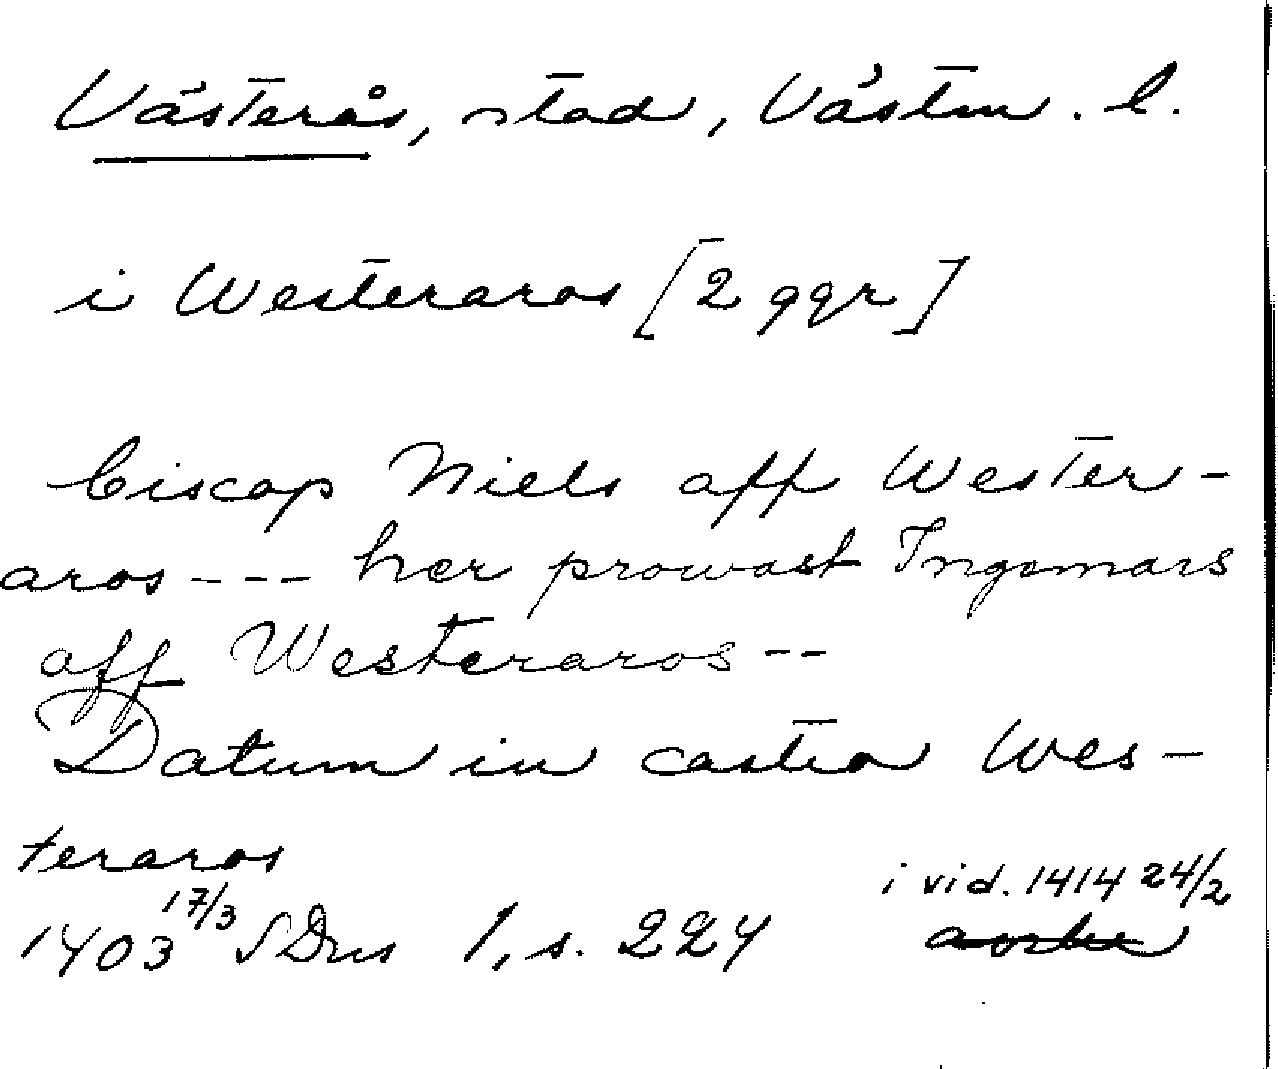 Västerås, stad, Västm. l.
i Westeraros [2 ggr]
biscop Niels aff Wester-
aros --- her prowast Ingemars
aff Westeraros --
Datum in castro Wes-
teraros
i vid. 1414 24/2
1403 17/3 SDns 1, s. 224